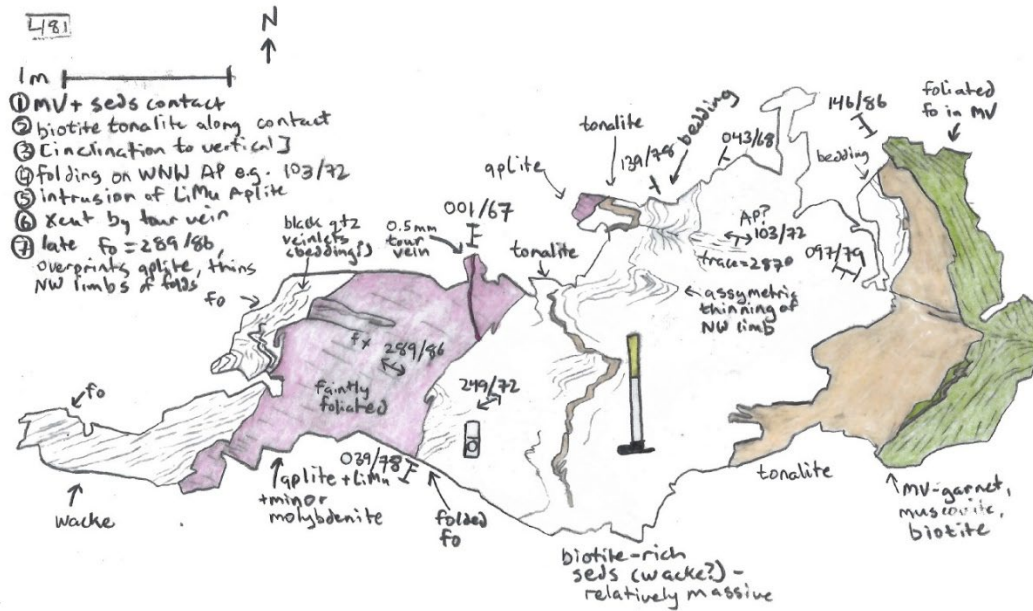 L481
N
1m
① MV + seds contact
② biotite tonalite along contact
③ [inclination to vertical]
④ folding on WNW AP e.g. 103/72
⑤ intrusion of LiMu Aplite
⑥ Xcut by tour vein
⑦ late fo = 289/86,
overprints aplite, thins
NW limbs of folds
fo
black qtz
veinlets
(bedding?)
0.5mm
tour
vein
001/67
tonalite
aplite
tonalite
139/78
bedding
043/68
146/86
bedding
foliated
fo in MV
AP?
103/72
trace=287°
097/79
assymetric
thinning of
NW limb
fx
289/86
faintly
foliated
249/72
fo
wacke
039/78
aplite + LiMu
+minor
molybdenite
folded
fo
biotite-rich
seds (wacke?) -
relatively massive
tonalite
MV-garnet,
muscovite,
biotite